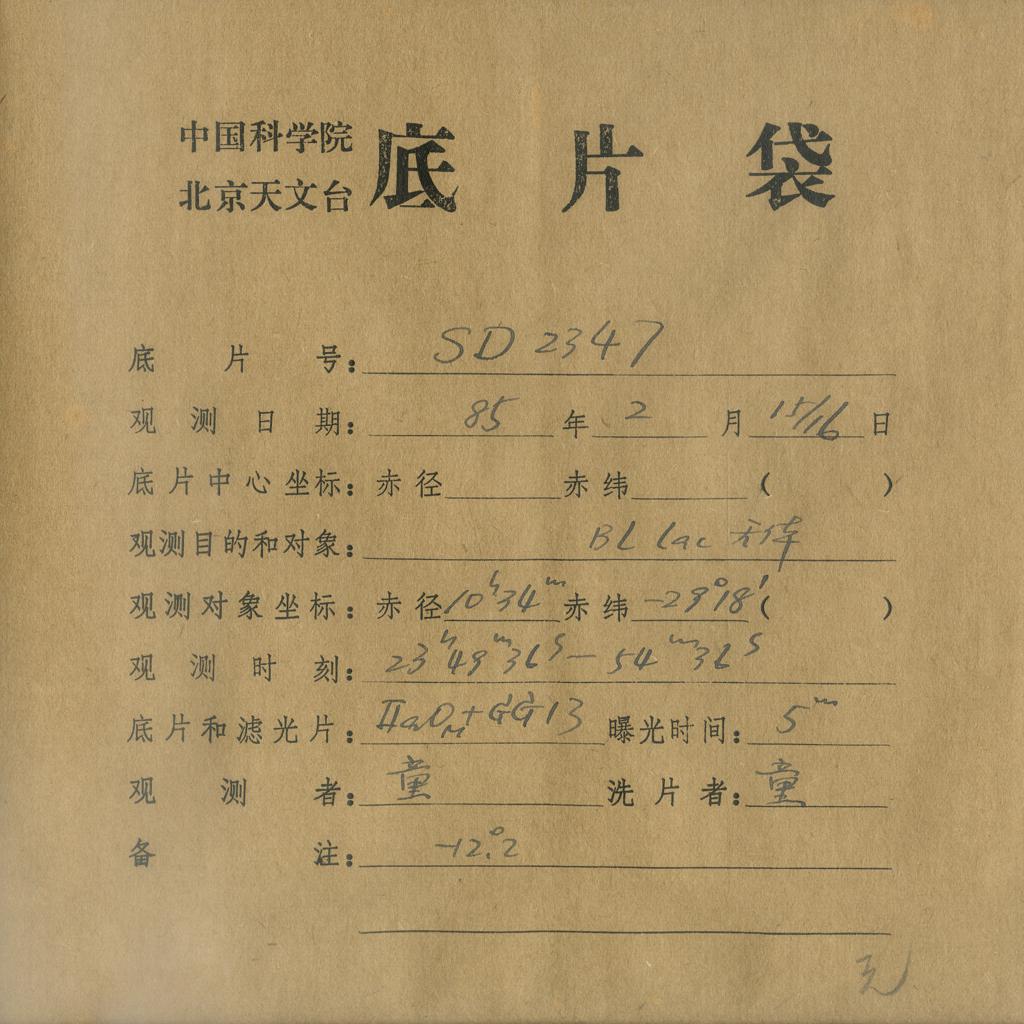 中国科学院
北京天文台 底片袋
底片号: SD 2347
观测日期: 85 年 2 月 15/16 日
底片中心坐标: 赤径 赤纬 ( )
观测目的和对象: BL lac 天体
观测对象坐标: 赤径 10ʰ34ᵐ 赤纬 -29°18′ ( )
观测时刻: 23ʰ49ᵐ36ˢ — 54ᵐ36ˢ
底片和滤光片: IIaO + GG13 曝光时间: 5ᵐ
观测者: 童 洗片者: 童
备注: -12.°2